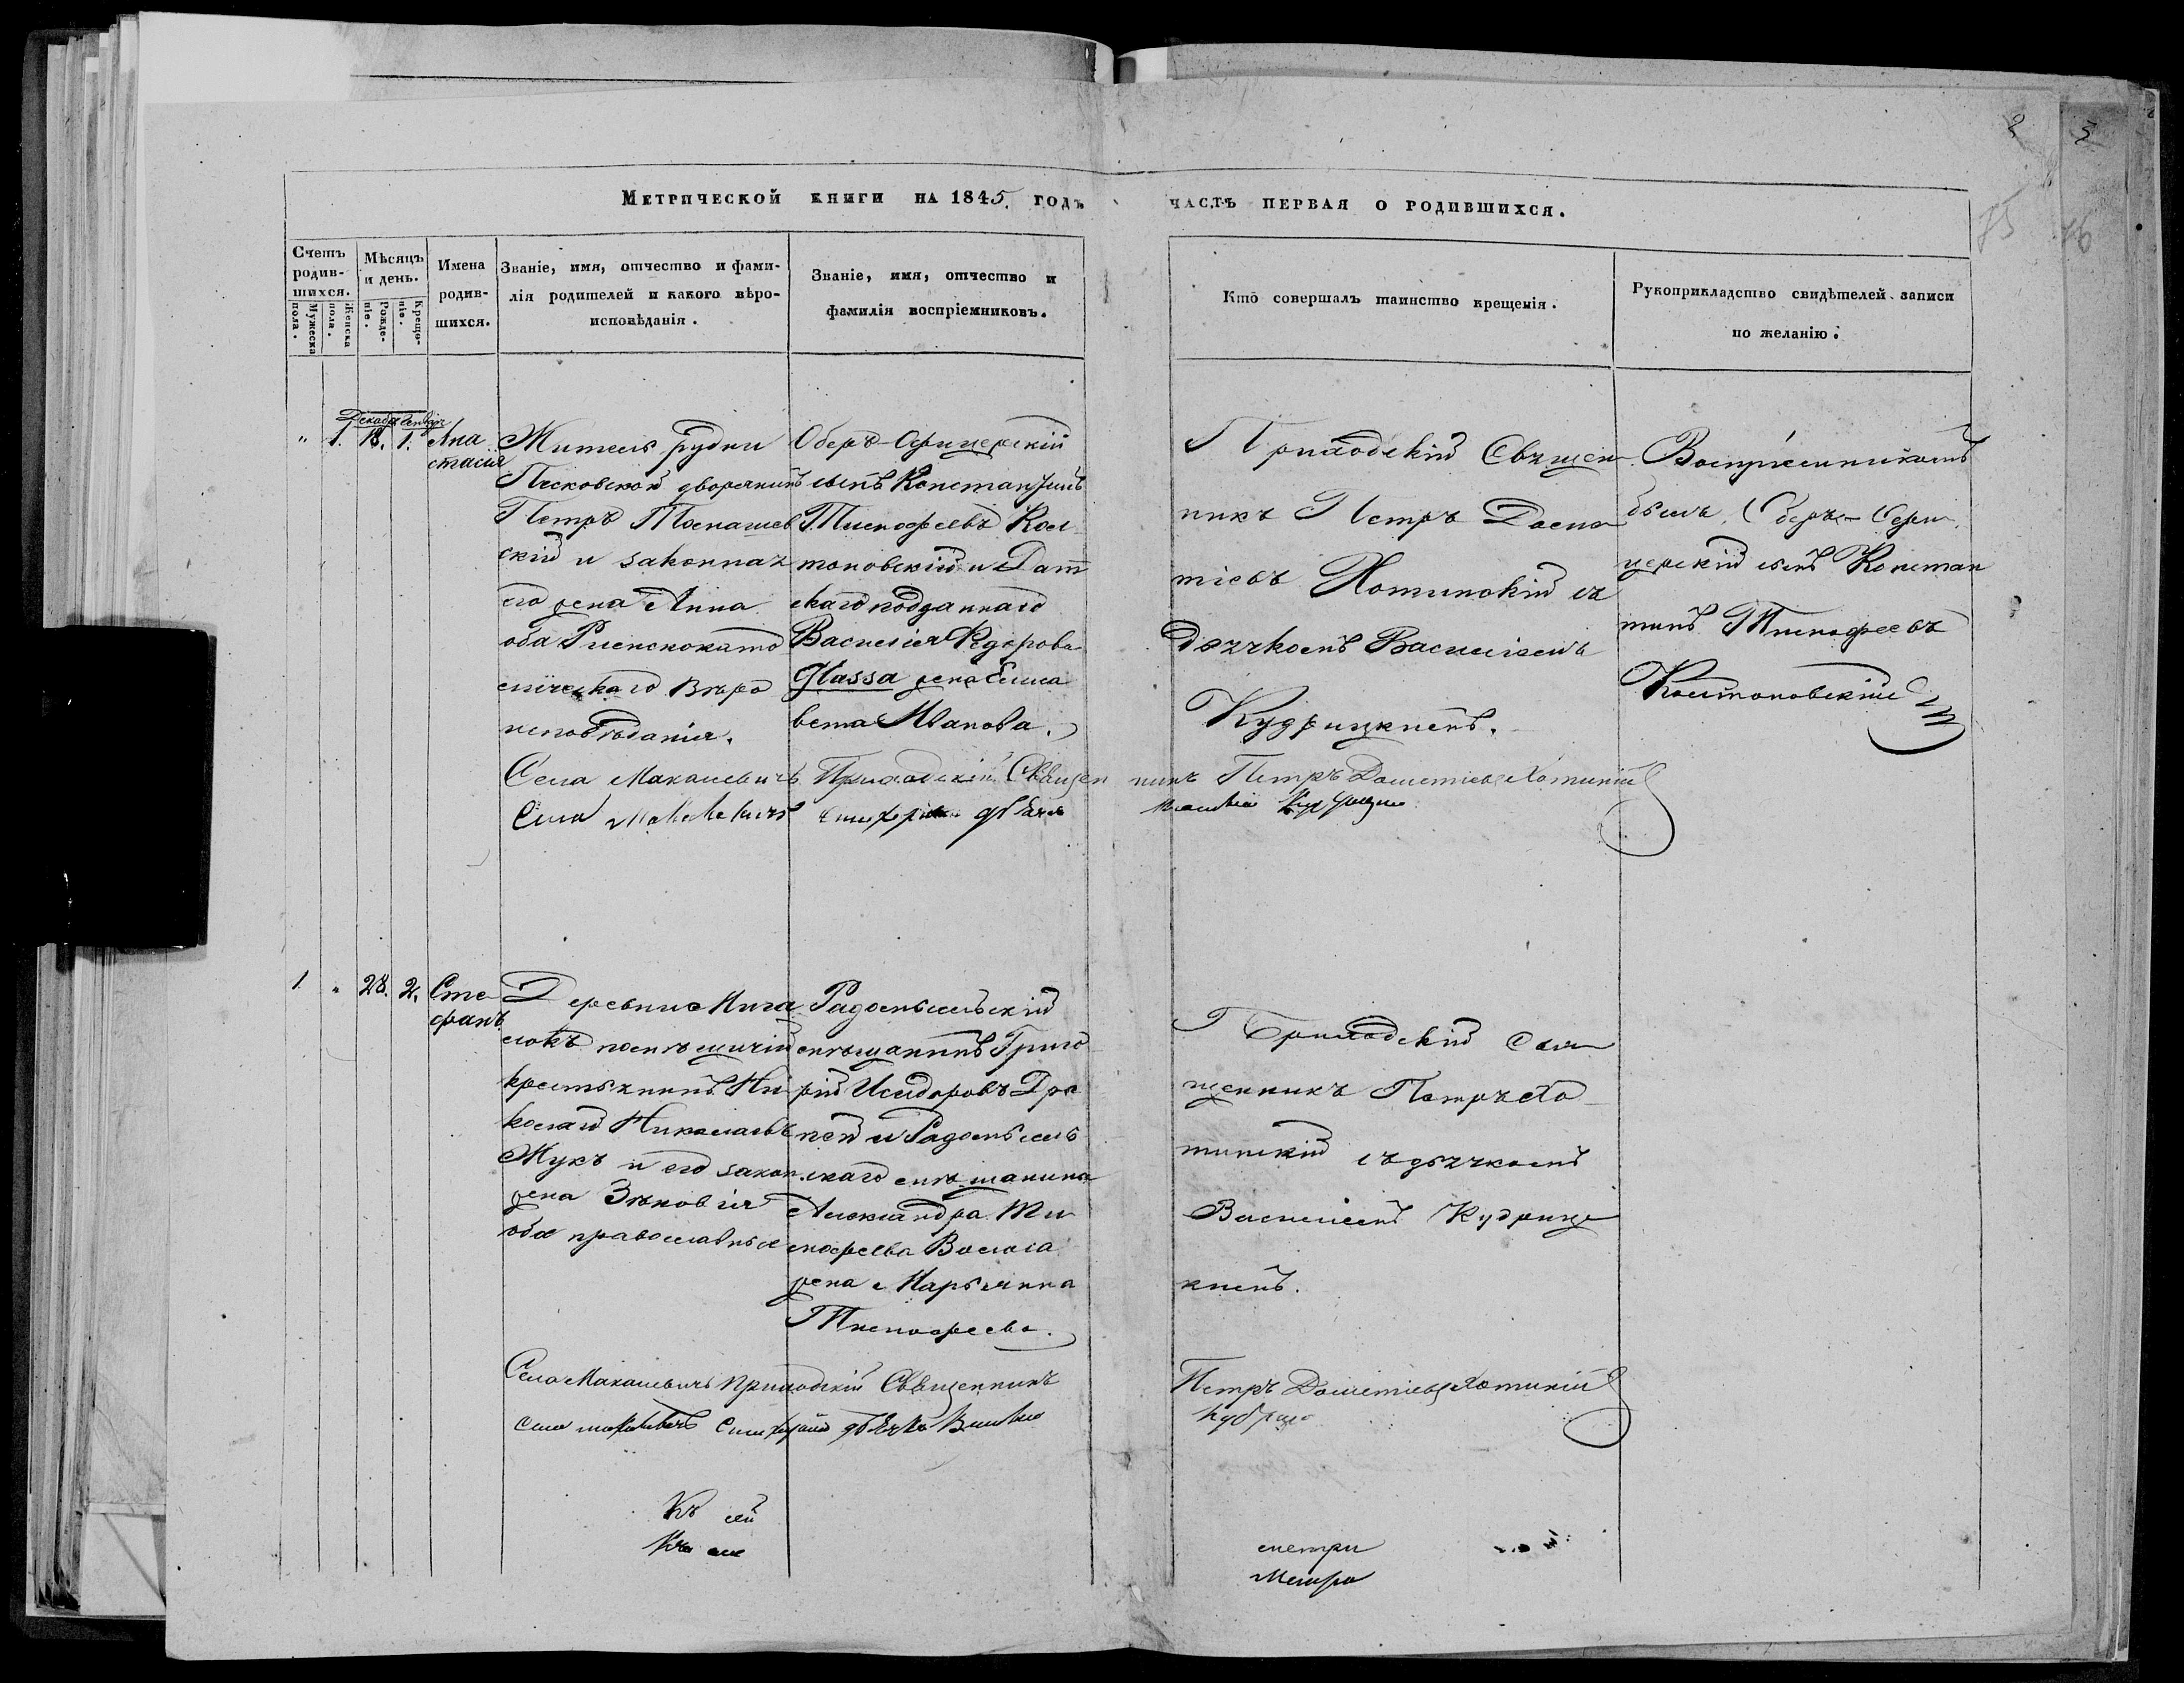 2 3
75 76
МЕТРИЧЕСКОЙ КНИГИ НА 1845. ГОДЪ
ЧАСТЬ ПЕРВАЯ О РОДИВШИХСЯ.
Счетъ родив-шихся.
Мужеска пола.
Женска пола.
Мѣсяцъ и день.
Рожде-ніе.
Креще-ніе.
Имена родив-шихся.
Званіе, имя, отчество и фами-
лія родителей и какого вѣро-
исповѣданія.
Званіе, имя, отчество и
фамилія воспріемниковъ.
Кто совершалъ таинство крещенія.
Рукоприкладство свидѣтелей записи
по желанію.
Декабр Генвар
" 1. 18. 1.
Ана
стасія
Житель рудни
Песковской дворянинъ
Петръ
скій и законная
его жена Анна
оба Римскокато
лическаго вѣро
исповѣданія.
Оберъ-Офицерскій
сынъ Константинъ
Тимофеевъ Кол
тоновскій и Дат
скаго подданнаго
Василія Федорова
Glassa жена Елиса
вета Иванова.
Приходскій Священ
никъ Петръ Доме
тіевъ Хотинскій съ
дьячкомъ Василіемъ
Кудрицкимъ.
Воспріемникомъ
былъ Оберъ-Офи
церскій сынъ Констан
тинъ Тимофеевъ
Колтоновскій
Села Макалевичъ Приходскій Священ никъ Петръ Дометіевъ Хотинскій
Села
1 " 28. 2.
Сте
фанъ
Деревни
помѣщичій
крестьянинъ Ни
колай Николаевъ
Жукъ и его закон.
жена Зѣновія
оба православные
Радомысльскій
мѣщанинъ Григо
рій Исидоровъ
и Радомысль
скаго мѣщанина
Александра Ти
мофеева
жена Марьянна
Тимофеева.
Приходскій Свя
щенникъ Петръ Хо
тинскій съ дьячкомъ
Василіемъ Кудриц
кимъ.
Села Макалевичъ приходскій Священникъ Петръ Дометіевъ Хотинскій
Къ сей
метри